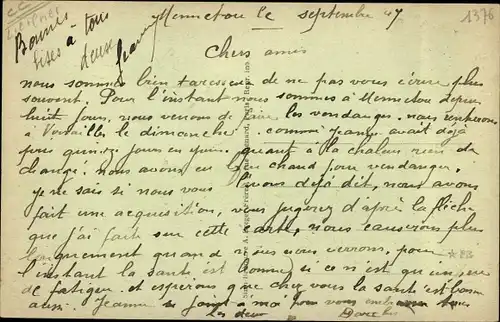 Mennetou le septembre 47
1376
Bonnes
bises à tous
deux
Jeanne
Chers amis
nous sommes bien paresseux de ne pas vous écrire plus
souvent. Pour l'instant nous sommes à Mennetou depuis
huit jours, nous venons de faire les vendanges. nous rentrerons
à Versailles le dimanche comme Jeanne avait déjà
pris quinze jours en juin. quant à la chaleur rien de
changé. nous avons eu bien chaud pour vendanger.
je ne sais si nous vous l'avons déjà dit, nous avons
fait une acquisition, vous jugerez d'après la flèche
que j'ai faite sur cette carte, nous causerons plus
longuement quand nous nous verrons, pour
l'instant la santé est bonne si ce n'est qu'un peu
de fatigue. et espérons que chez vous la santé est bonne
aussi. Jeanne se joint à moi pour vous embrasser tous
les deux